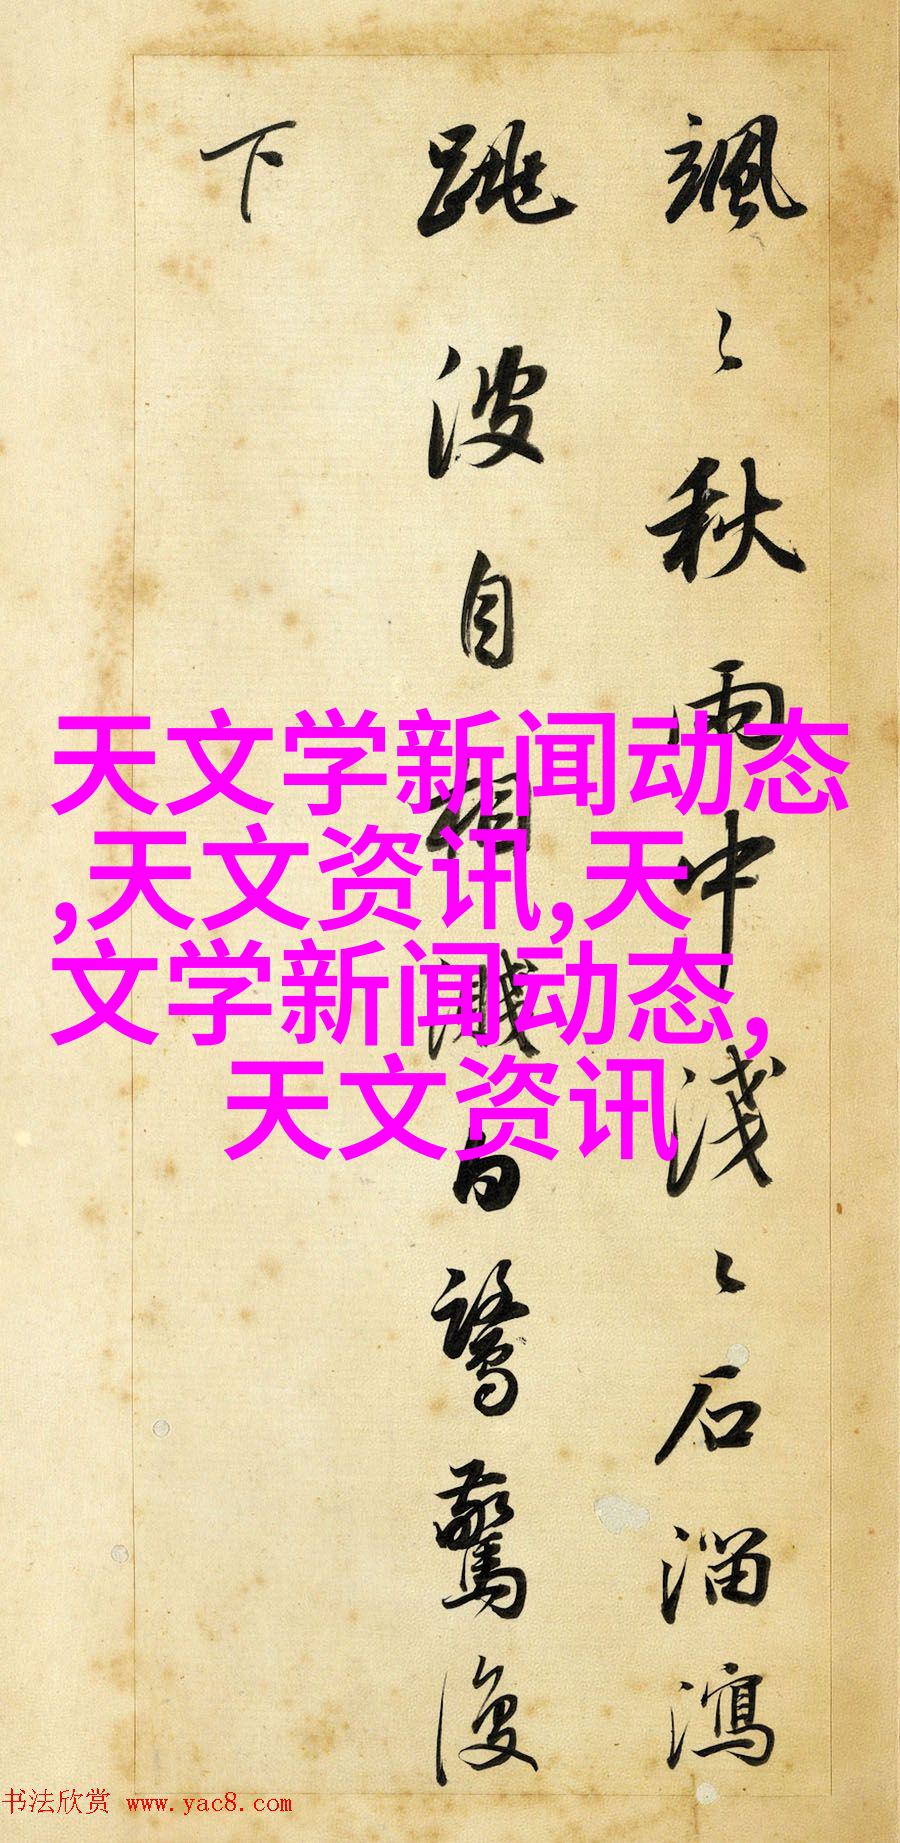 颯〻秋雨中淺〻石溜瀉
跳波自相濺白鷺驚復
下
天文学新闻动态
,天文资讯,天
文学新闻动态,
天文资讯
书法欣赏 www.yac8.com